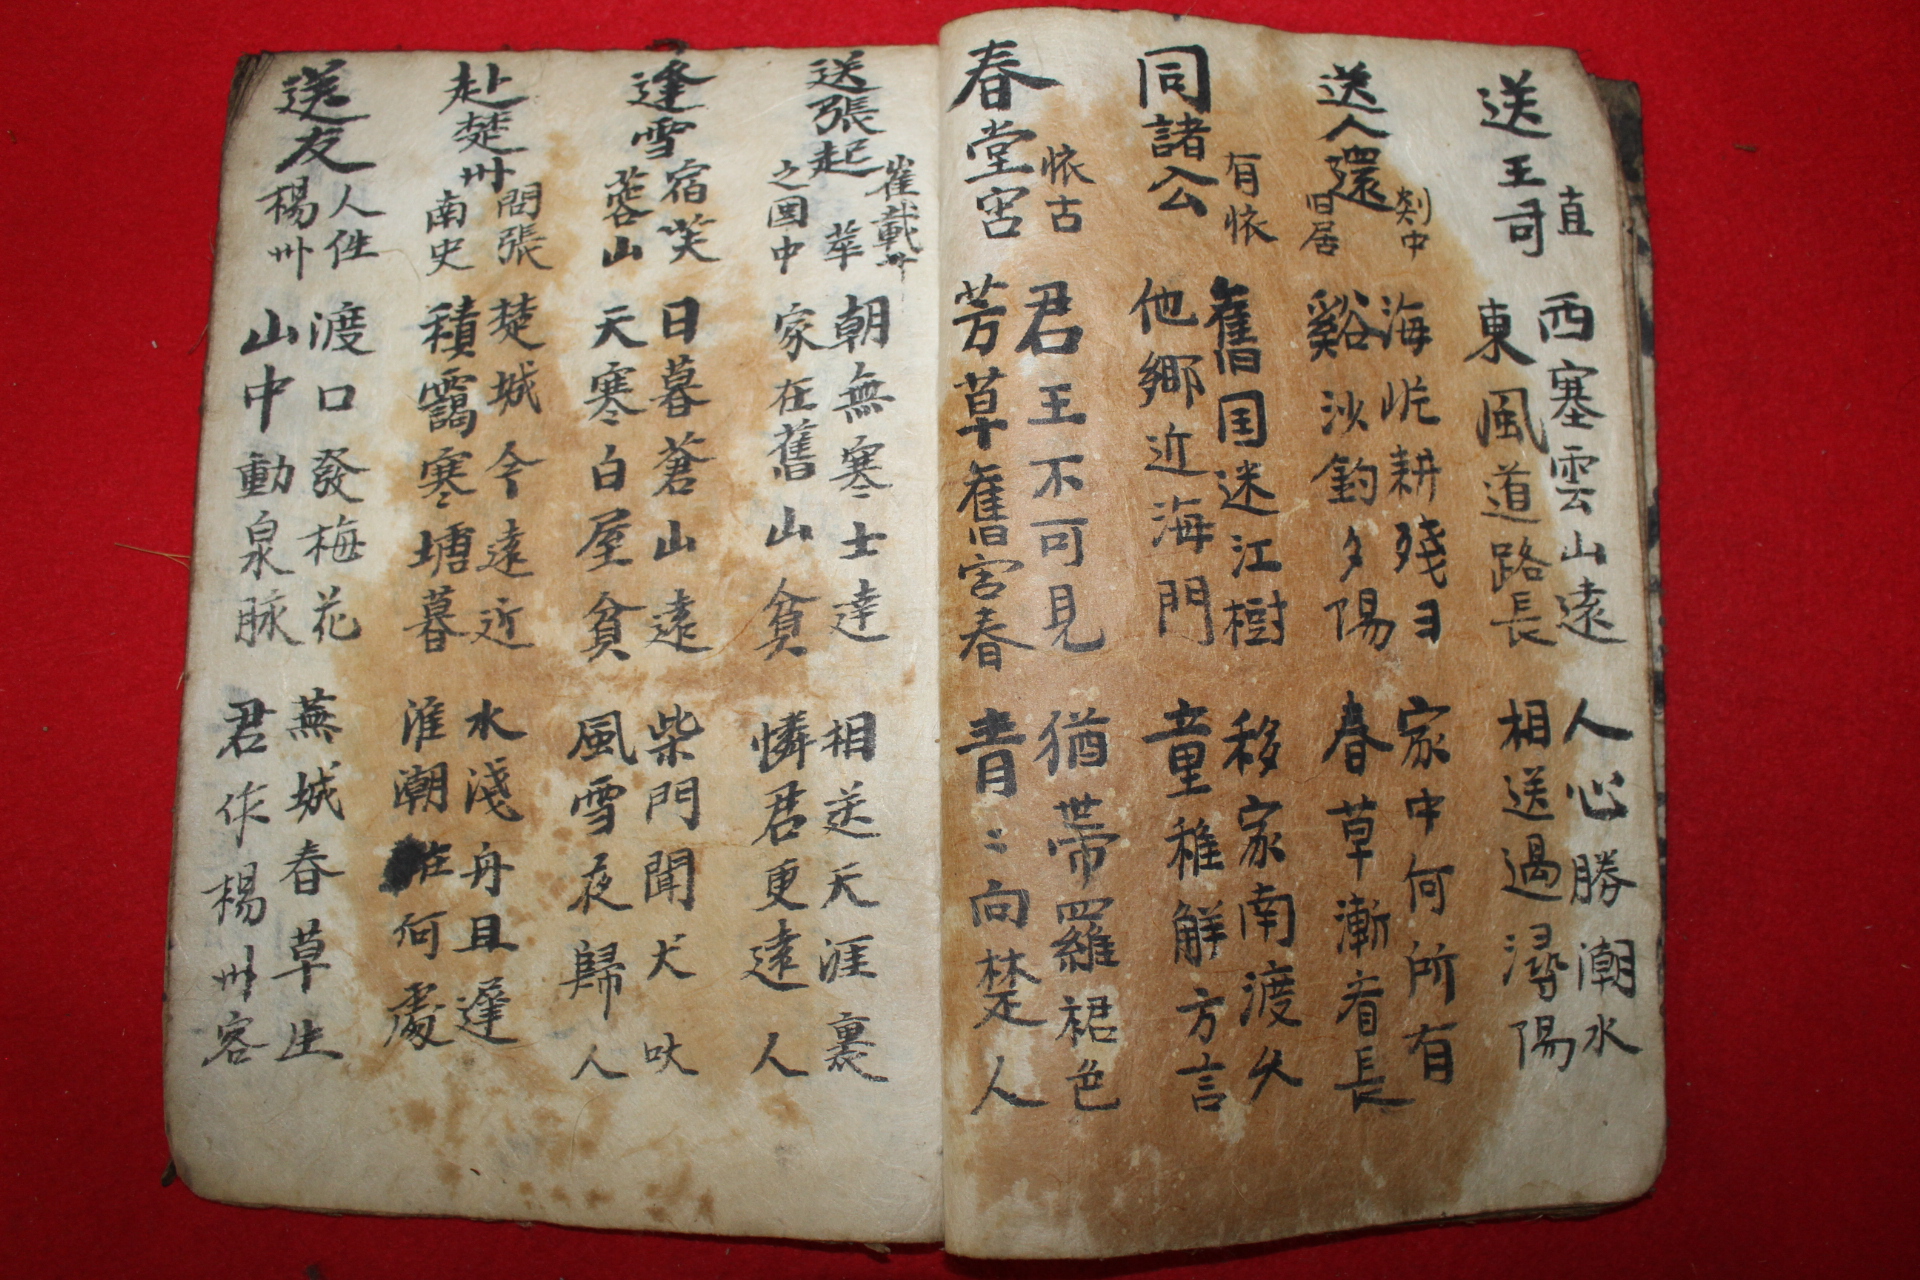 送王司直
西塞雲山遠
東風道路長
人心勝潮水
相送過潯陽
送人還剡中旧居
海㞮耕殘日
谿沙釣夕陽
家中何所有
春草漸看長
同諸公有懐
舊国迷江樹
他鄉近海門
移家南渡久
童稚解方言
春堂宮懐古
君王不可見
芳草舊宮春
猶帶羅裙色
青〻向楚人
送張起崔載華之閩中
朝無寒士達
家在舊山貧
相送天涯裏
憐君更遠人
逢雪宿芙蓉山
日暮蒼山遠
天寒白屋貧
柴門聞犬吠
風雪夜歸人
赴楚州問張南史
楚城今遠近
積靄寒塘暮
水淺舟且遲
淮潮在何處
送友人性楊州
渡口發梅花
山中動泉脉
蕪城春草生
君作楊州客